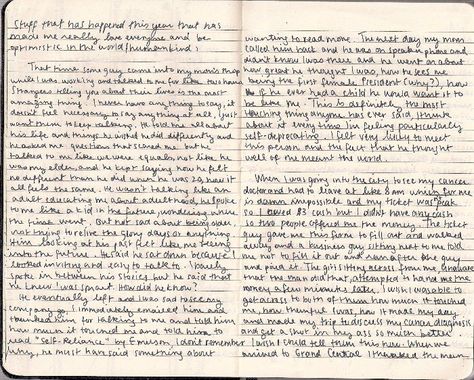 Stuff that has happened this year that has
made me really love everyone and be
optimistic in the world/humankind:
That time some guy came into my mom's shop
while I was working and talked to me for like two hours.
Strangers telling you about their lives is the most
amazing thing. I never have anything to say, it
doesn't feel necessary to say anything at all, I just
want them to keep talking. He told me all about
his life and things he wished he did differently and
he asked me questions that scared me. but he
talked to me like we were equals, not like he
was my elder, and he kept saying how he felt
no different than he did when he was 20, how it
all feels the same. He wasn't talking like an
adult educating me about adulthood, he spoke
to me like a kid in the future, wondering where
the time went. But not sad about being older,
not trying to relive the glory days or anything.
Him looking at his past felt like me seeing
into the future. He said he sat down because I
looked inviting and easy to talk to. I barely
spoke in between his stories but he said that
he knew I was smart. How did he know?
He eventually left and I was sad to see my
company go. I immediately emailed him and
thanked him for talking to me and told him
how much it touched me and told him to
read "Self-Reliance" by Emerson, I don't remember
why, he must have said something about
wanting to read more. The next day my mom
called him back and he was on speaker phone and
didn't know I was there and he went on about
how great he thought I was, how he sees me
being the first female President (why?), how
if he ever had a child he would want it to
be like me. This is definitely the most
touching thing anyone has ever said, I think
about it every time I'm feeling particularly
self-deprecating. I felt very lucky to meet
this person and the fact that he thought
well of me meant the world.
When I was going into the city to see my cancer
doctor and had to leave at like 8am which for me
is damn impossible and my ticket was peak
so I owed $3 cash but I didn't have any cash
so two people offered me the money. The ticket
guy gave me this form to fill out and walked
away and a business guy sitting next to me told
me not to fill it out and ran after the guy
and paid it. The girl sitting across from me, unaware
that the man did that, attempted to hand me the
money a few minutes later. I wish I was able to
get across to both of them how much it touched
me, how thankful I was, how it made my day
and made my trip to discuss my cancer diagnosis
and get a shot in my ass so much better.
I wish I could tell them this here. When we
arrived to Grand Central I thanked the man